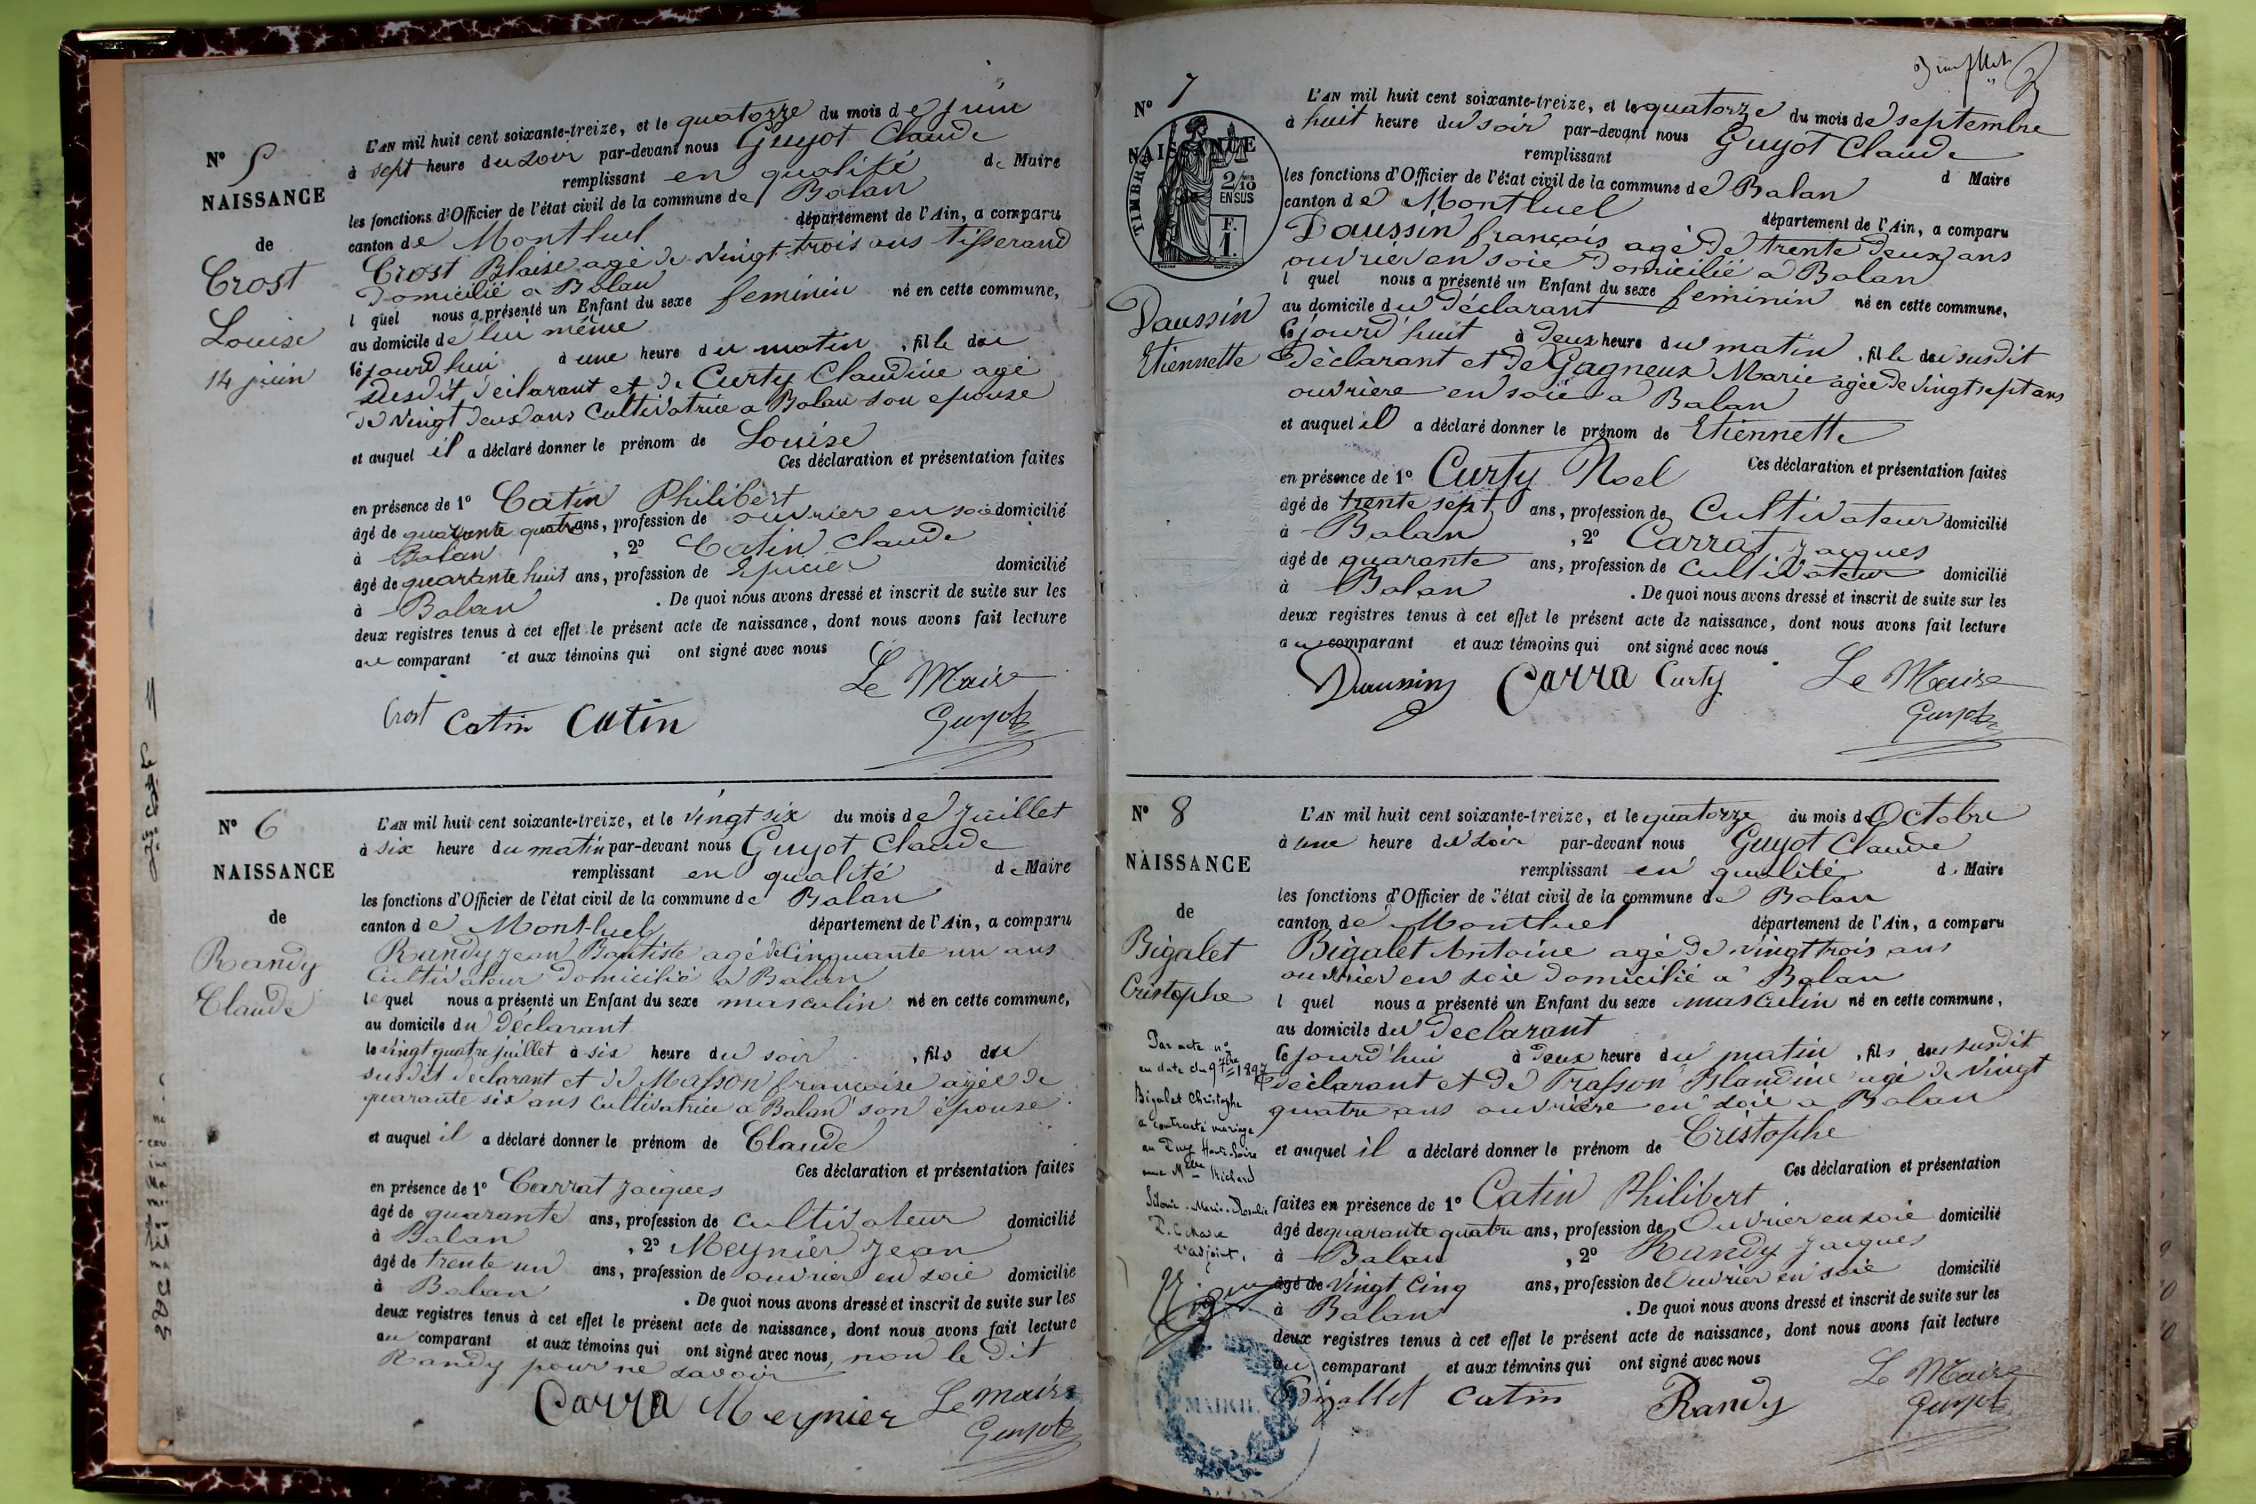 N° 5
NAISSANCE
de
Crost
Louise
14 juin
L'AN mil huit cent soixante-treize, et le quatorze du mois de juin
à sept heure du soir par-devant nous Guyot Claude
remplissant en qualité de Maire
les fonctions d'Officier de l'état civil de la commune de Balan
canton de Montluel département de l'Ain, a comparu
Crost Blaise agé de vingt trois ans tisserand
domicilié a Balan
l quel nous a présenté un Enfant du sexe feminin né en cette commune,
au domicile de lui même
cejourd'hui à une heure du matin , fille du
susdit déclarant et de Curty Claudine agé
de vingt deux ans Cultivatrice a Balan son epouse
et auquel il a déclaré donner le prénom de Louise
Ces déclaration et présentation faites
en présence de 1° Catin Philibert
âgé de quarante quatre ans, profession de ouvrier en soie domicilié
à Balan , 2° Catin Claude
âgé de quarante huit ans, profession de Epicier domicilié
à Balan . De quoi nous avons dressé et inscrit de suite sur les
deux registres tenus à cet effet le présent acte de naissance, dont nous avons fait lecture
au comparant et aux témoins qui ont signé avec nous
Le Maire
Crost Catin Catin Guyot
N° 6
NAISSANCE
de
Randy
Claude
L'AN mil huit cent soixante-treize, et le vingt six du mois de juillet
à six heure du matin par-devant nous Guyot Claude
remplissant en qualité de Maire
les fonctions d'Officier de l'état civil de la commune de Balan
canton de Montluel département de l'Ain, a comparu
Randy jean Baptiste agé de Cinquante un ans
Cultivateur domicilié a Balan
lequel nous a présenté un Enfant du sexe masculin né en cette commune,
au domicile du déclarant
le vingt quatre juillet à six heure du soir , fils du
susdit declarant et de Masson françoise agée de
quarante six ans cultivatrice a Balan son épouse
et auquel il a déclaré donner le prénom de Claude
Ces déclaration et présentation faites
en présence de 1° Carrat jacques
âgé de quarante ans, profession de cultivateur domicilié
à Balan , 2° Meynier jean
âgé de trente un ans, profession de ouvrier en soie domicilié
à Balan . De quoi nous avons dressé et inscrit de suite sur les
deux registres tenus à cet effet le présent acte de naissance, dont nous avons fait lecture
au comparant et aux témoins qui ont signé avec nous, non le dit
Randy pour ne savoir
Carra Meynier Le maire
Guyot
N° 7
NAISSANCE
de
TIMBRE
2/10
EN SUS
F.
1.
Daussin
Etiennette
L'AN mil huit cent soixante-treize, et le quatorze du mois de septembre
à huit heure du soir par-devant nous Guyot Claude
remplissant d Maire
les fonctions d'Officier de l'état civil de la commune de Balan
canton de Montluel département de l'Ain, a comparu
Daussin françois agé de trente deux ans
ouvrier en soie domicilié a Balan
l quel nous a présenté un Enfant du sexe feminin né en cette commune,
au domicile du déclarant
cejourd'huit à deux heure du matin , fille du susdit
déclarant et de Gagneux Marie agée de vingt sept ans
ouvrière en soie a Balan
et auquel il a déclaré donner le prénom de Etiennette
Ces déclaration et présentation faites
en présence de 1° Curty Noel
âgé de trente sept ans, profession de Cultivateur domicilié
à Balan , 2° Carrat jacques
âgé de quarante ans, profession de cultivateur domicilié
à Balan . De quoi nous avons dressé et inscrit de suite sur les
deux registres tenus à cet effet le présent acte de naissance, dont nous avons fait lecture
au comparant et aux témoins qui ont signé avec nous
Daussin Carra Curty Le Maire
Guyot
N° 8
NAISSANCE
de
Bigalet
Cristophe
Par acte n°
en date du 9 7bre 1897
Bigalet Christophe
a contracté mariage
au Puy Haute Loire
avec Melle Richard
Marie Rosalie
l'adjoint,
L'AN mil huit cent soixante-treize, et le quatorze du mois d Octobre
à une heure du soir par-devant nous Guyot Claude
remplissant en qualité d. Maire
les fonctions d'Officier de l'état civil de la commune de Balan
canton de Montluel département de l'Ain, a comparu
Bigalet Antoine agé de vingt trois ans
ouvrier en soie domicilié a Balan
l quel nous a présenté un Enfant du sexe masculin né en cette commune,
au domicile du declarant
cejourd'hui à deux heure du matin , fils du susdit
déclarant et de Frasson Blandine agé de vingt
quatre ans ouvrière en soie a Balan
et auquel il a déclaré donner le prénom de Cristophe
Ces déclaration et présentation
faites en présence de 1° Catin Philibert
âgé de quarante quatre ans, profession de Ouvrier en soie domicilié
à Balan , 2° Randy jacques
âgé de vingt cinq ans, profession de Ouvrier en soie domicilié
à Balan . De quoi nous avons dressé et inscrit de suite sur les
deux registres tenus à cet effet le présent acte de naissance, dont nous avons fait lecture
au comparant et aux témoins qui ont signé avec nous
Le Maire
Bigallet Catin Randy Guyot
MAIRIE